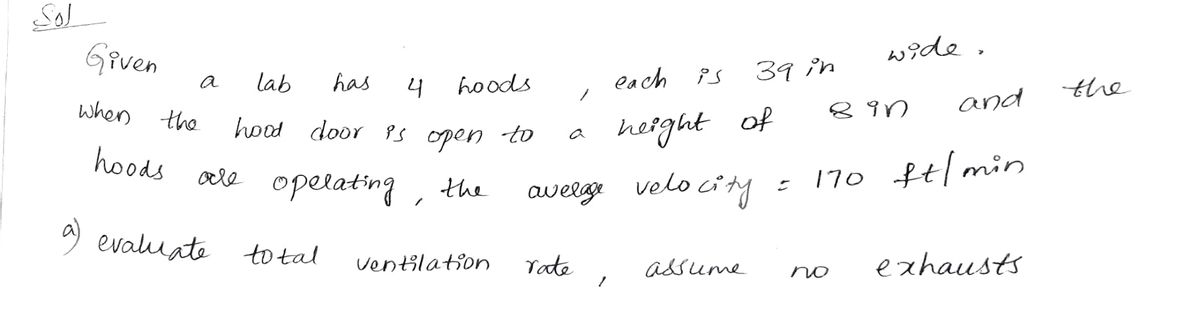 Sol
Given a lab has 4 hoods, each is 39 in wide.
when the hood door is open to a height of 8 in and the
hoods are operating, the average velocity = 170 ft/min
a) evaluate total ventilation rate, assume no exhausts